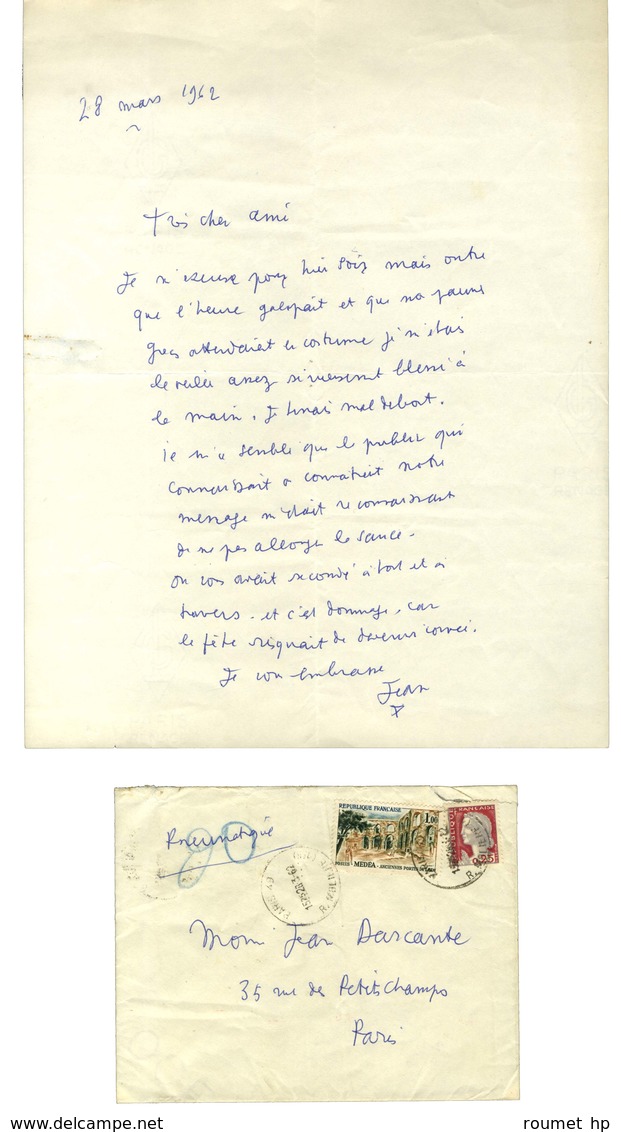 28 mars 1962
Très cher ami
Je m'excuse pour hier soir mais outre
que l'heure galopait et que nos jeunes
grecs attendaient en costume je m'étais
la veille assez sérieusement blessé à
la main. Je tenais mal debout.
il m'a semblé que le public qui
connaissait a connaitrait notre
message m'était reconnaissant
de ne pas allonger la séance.
on vous avait secondé à tort et à
travers. et c'est dommage, car
la fête risquait de devenir corvée.
Je vous embrasse
Jean
Pneumatique
90
REPUBLIQUE FRANÇAISE
1,00
POSTES - MEDEA - ANCIENNES PORTES DE
FRANÇAISE
0,25
Jean Dascante
35 rue des Petits Champs
Paris
roumet hp